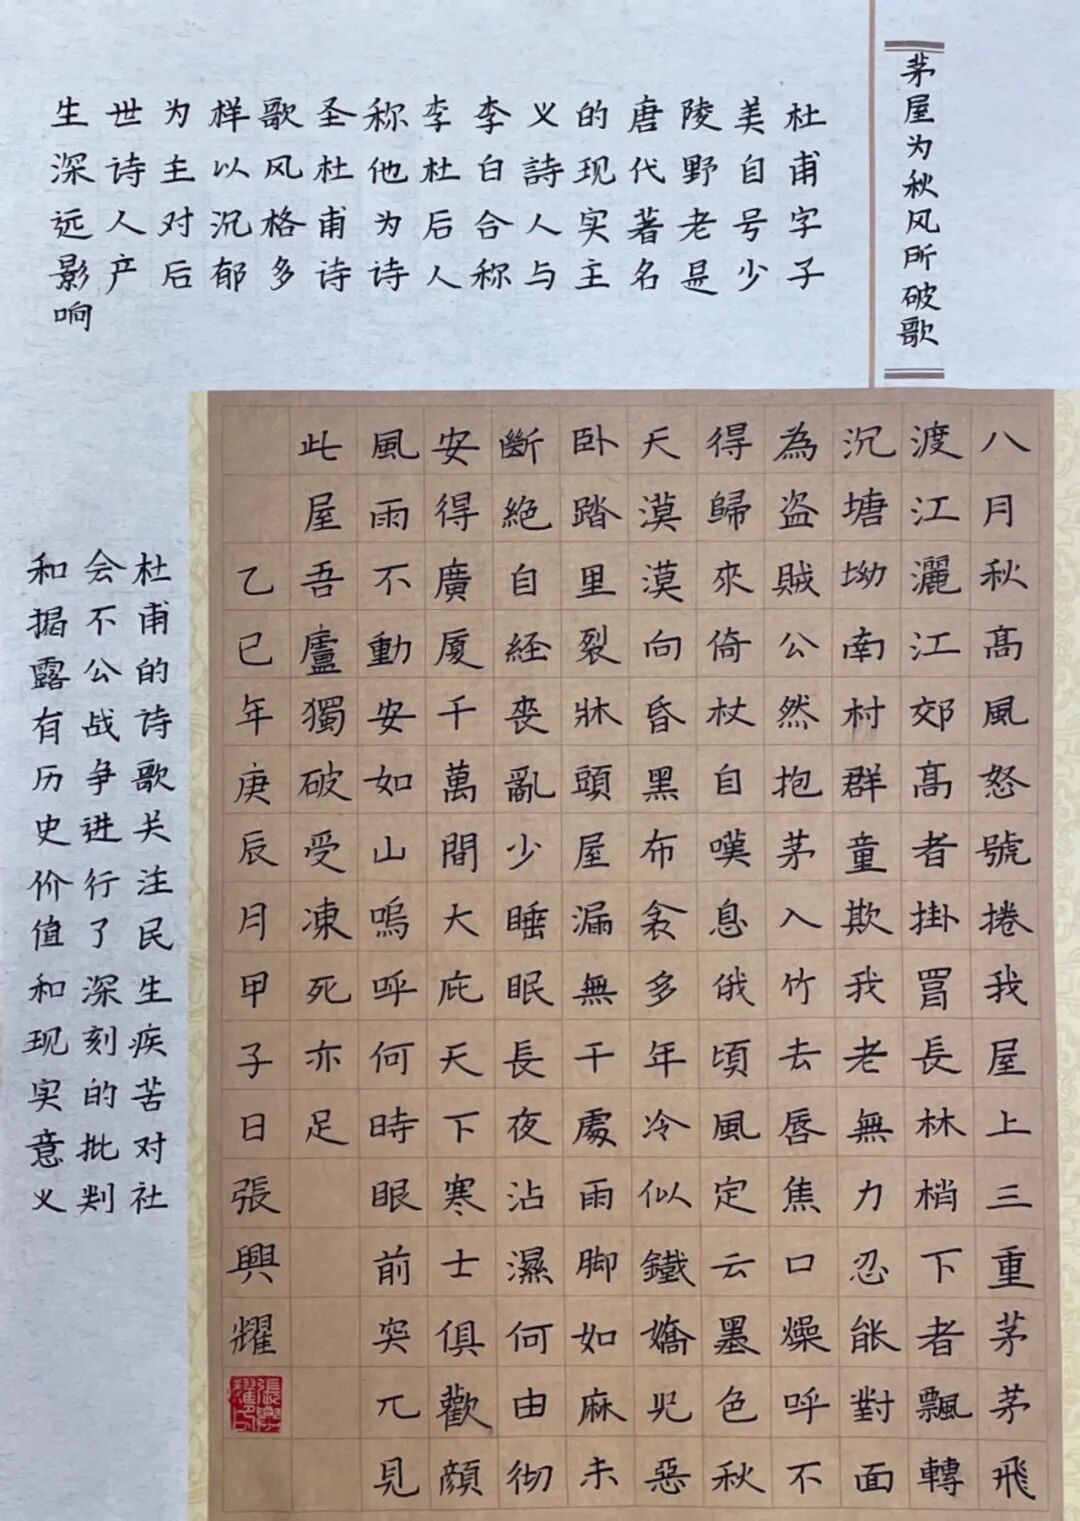 茅屋为秋风所破歌
杜甫字子
美自号少
陵野老是
唐代著名
的现实主
义詩人与
李白合称
李杜后人
称他为诗
圣杜甫诗
歌风格多
样以沉郁
为主对后
世诗人产
生深远影响
八月秋高風怒號捲我屋上三重茅茅飛
渡江灑江郊高者掛罥長林梢下者飄轉
沉塘坳南村群童欺我老無力忍能對面
為盗賊公然抱茅入竹去唇焦口燥呼不
得歸來倚杖自嘆息俄頃風定云墨色秋
天漠漠向昏黑布衾多年冷似鐵嬌児惡
卧踏里裂牀頭屋漏無干處雨脚如麻未
斷絶自経喪亂少睡眠長夜沾濕何由彻
安得廣厦千萬間大庇天下寒士俱歡顔
風雨不動安如山嗚呼何時眼前突兀見
此屋吾廬獨破受凍死亦足
乙巳年庚辰月甲子日張興耀
張興耀印
杜甫的诗歌关注民生疾苦对社
会不公战争进行了深刻的批判
和揭露有历史价值和现实意义